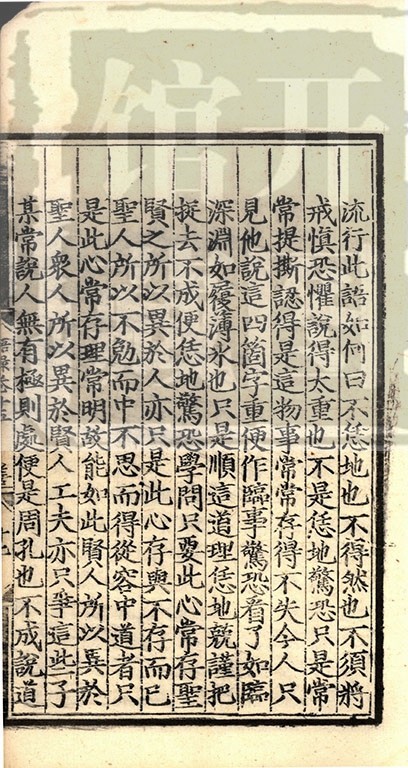 流行此語如何曰不恁地也不得然也不須將
戒慎恐懼說得太重也不是恁地驚恐只是常
常提撕認得是這物事常常存得不失今人只
見他說這四箇字重便作臨事驚恐看了如臨
深淵如履薄氷也只是順這道理恁地兢謹把
捉去不成便恁地驚恐學問只要此心常存聖
賢之所以異於人亦只是此心存與不存而已
聖人所以不勉而中不思而得從容中道者只
是此心常存理常明故能如此賢人所以異於
聖人衆人所以異於賢人工夫亦只爭這此子
某常說人無有極則處便是周孔也不成說道